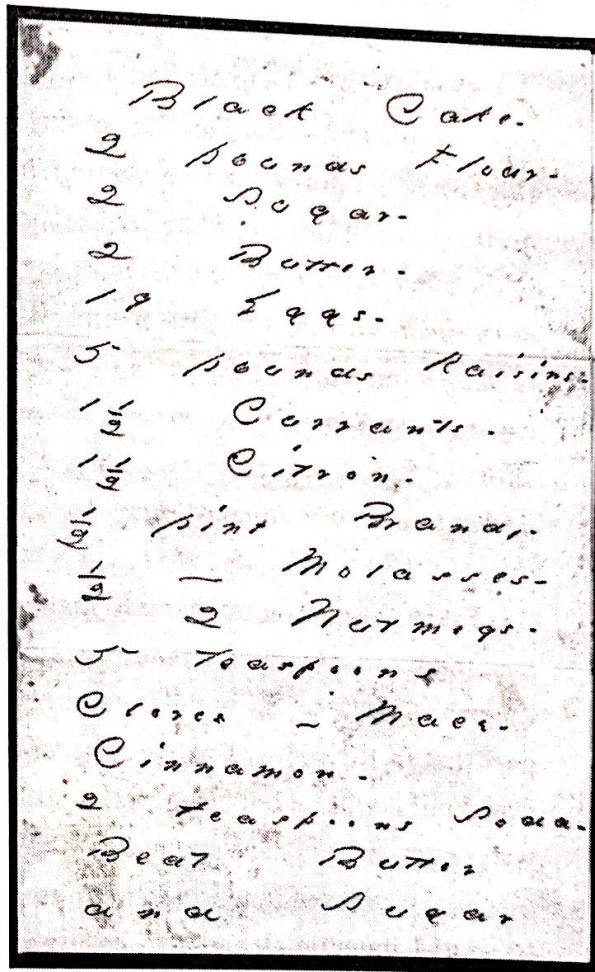 Black Cake.
2 pounds Flour.
2 Sugar.
2 Butter.
19 Eggs.
5 pounds Raisins.
1 1/2 Currants.
1 1/2 Citron.
1/2 pint Brandy.
1/2 — Molasses.
2 Nutmegs.
5 teaspoons
Cloves — Mace.
Cinnamon.
2 teaspoons Soda.
Beat Butter
and Sugar